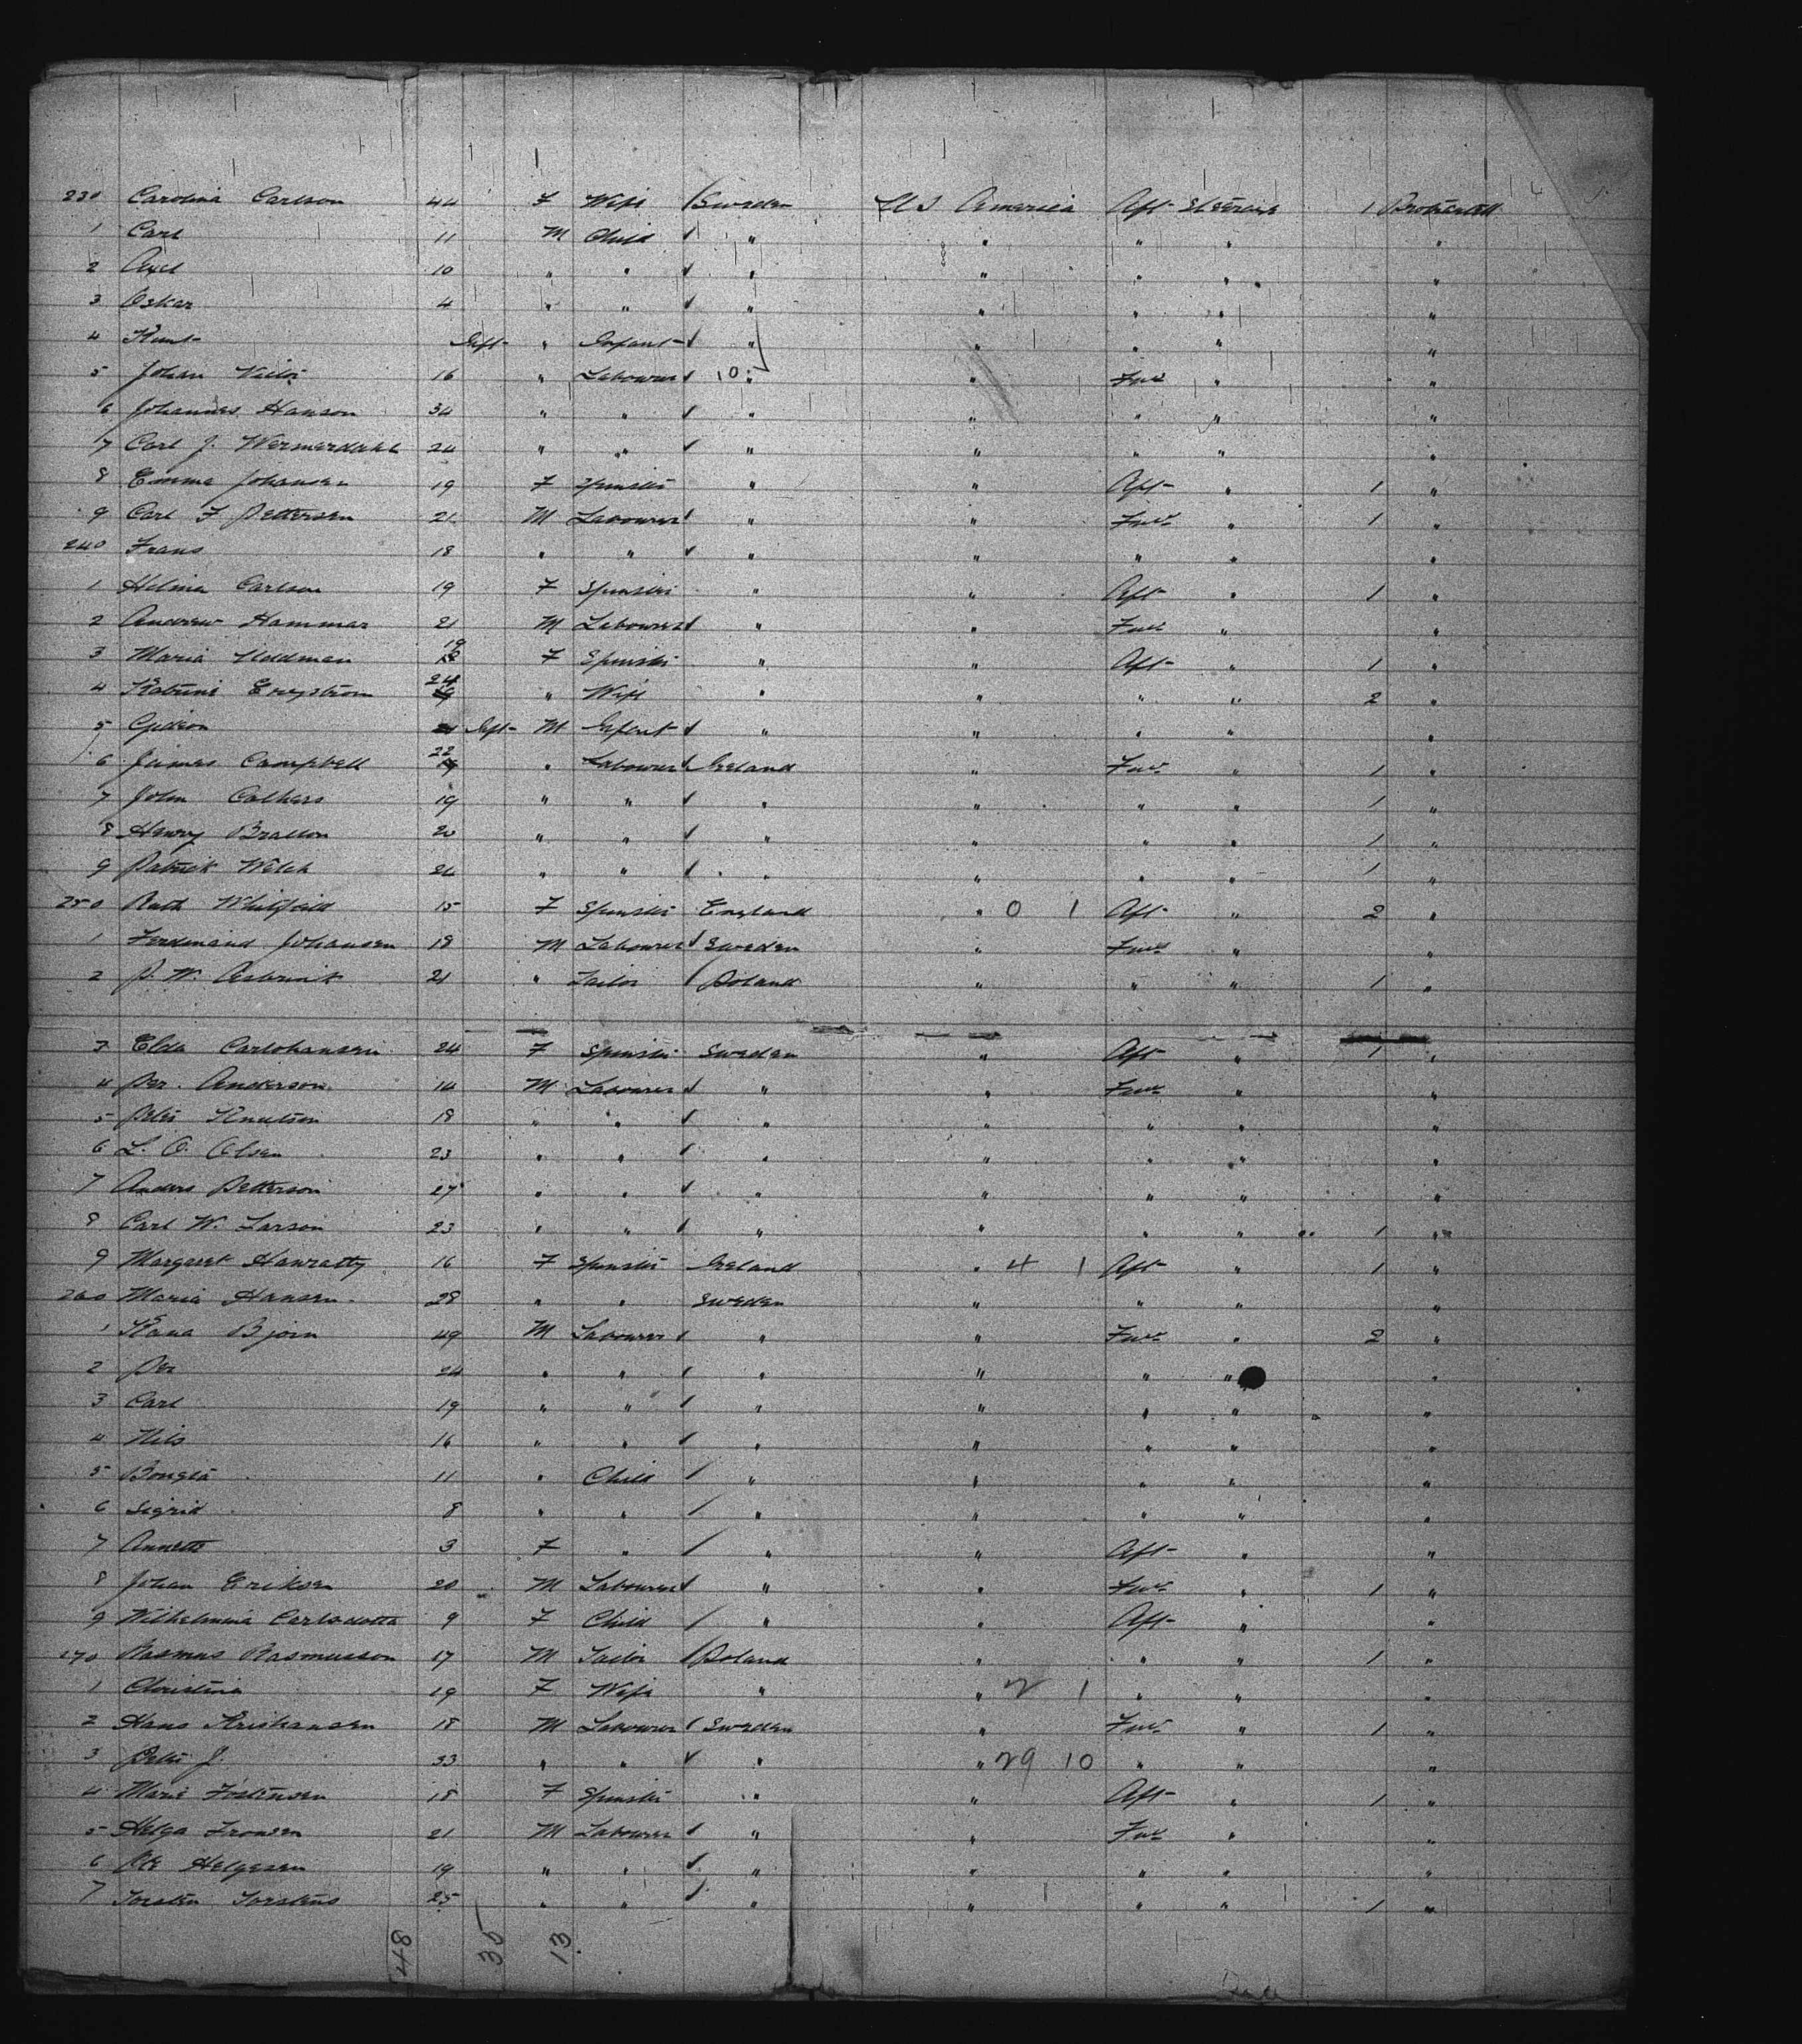 230 Carolina Carlson 44 F Wife Sweden U S America Aft Steerage 1
1 Carl 11 M Child " " " " "
2 Axel 10 " " " " " " "
3 Oskar 4 " " " " " " "
4 Inft " Infant " " " " "
5 Johan 16 " Labourer 10 " " Fwd " "
6 Johannes Hanson 34 " " " " " " "
7 Carl J. 24 " " " " " " "
8 Emma Johansen 19 F Spinster " " Aft " 1 "
9 Carl F Pettersen 21 M Labourer " " Fwd " 1 "
240 Frans 18 " " " " " " "
1 Carlson 19 F Spinster " " Aft " 1 "
2 Andrew Hammar 21 M Labourer " " Fwd " "
3 Maria 19 F Spinster " " Aft " 1 "
4 24 " Wife " " " " 2 "
5 Inft M Infant " " " " "
6 James Campbell 22 " Labourer Ireland " Fwd " 1 "
7 John 19 " " " " " " 1 "
8 Henry 20 " " " " " " 1 "
9 Patrick Welch 24 " " " " " " 1 "
250 Ruth 15 F Spinster England " 0 1 Aft " 2 "
1 Ferdinand Johansen 18 M Labourer Sweden " Fwd " "
2 P. W. 21 " Tailor Poland " " " 1 "
3 24 F Spinster Sweden " Aft " 1 "
4 Per. Anderson 14 M Labourer " " Fwd " "
5 Peter Knutson 18 " " " " " " "
6 L. O. Olsen 23 " " " " " " "
7 Anders Petterson 27 " " " " " " "
8 Carl W. Larson 23 " " " " " " 1 "
9 Margaret Hanratty 16 F Spinster Ireland " 4 1 Aft " 1 "
260 Maria Hansen 28 " " Sweden " " " "
1 Bjorn 49 M Labourer " " Fwd " 2 "
2 Per 24 " " " " " " "
3 Carl 19 " " " " " " "
4 Nils 16 " " " " " " "
5 11 " Child " " " " "
6 Sigrid 8 " " " " " " "
7 Annette 3 F " " " Aft " "
8 Johan Eriksen 20 M Labourer " " Fwd " 1 "
9 Wilhelmina 9 F Child " " Aft " "
270 Rasmus Rasmusson 17 M Tailor Poland " " " 1 "
1 Christina 19 F Wife " " 2 1 " " "
2 Hans 18 M Labourer Sweden " Fwd " 1 "
3 Peter J. 33 " " " " 29 10 " " "
4 18 F Spinster " " Aft " 1 "
5 Helga 21 M Labourer " " Fwd " "
6 Ole Helgesen 19 " " " " " " "
7 Torsten 25 " " " " " " 1 "
48 35 13